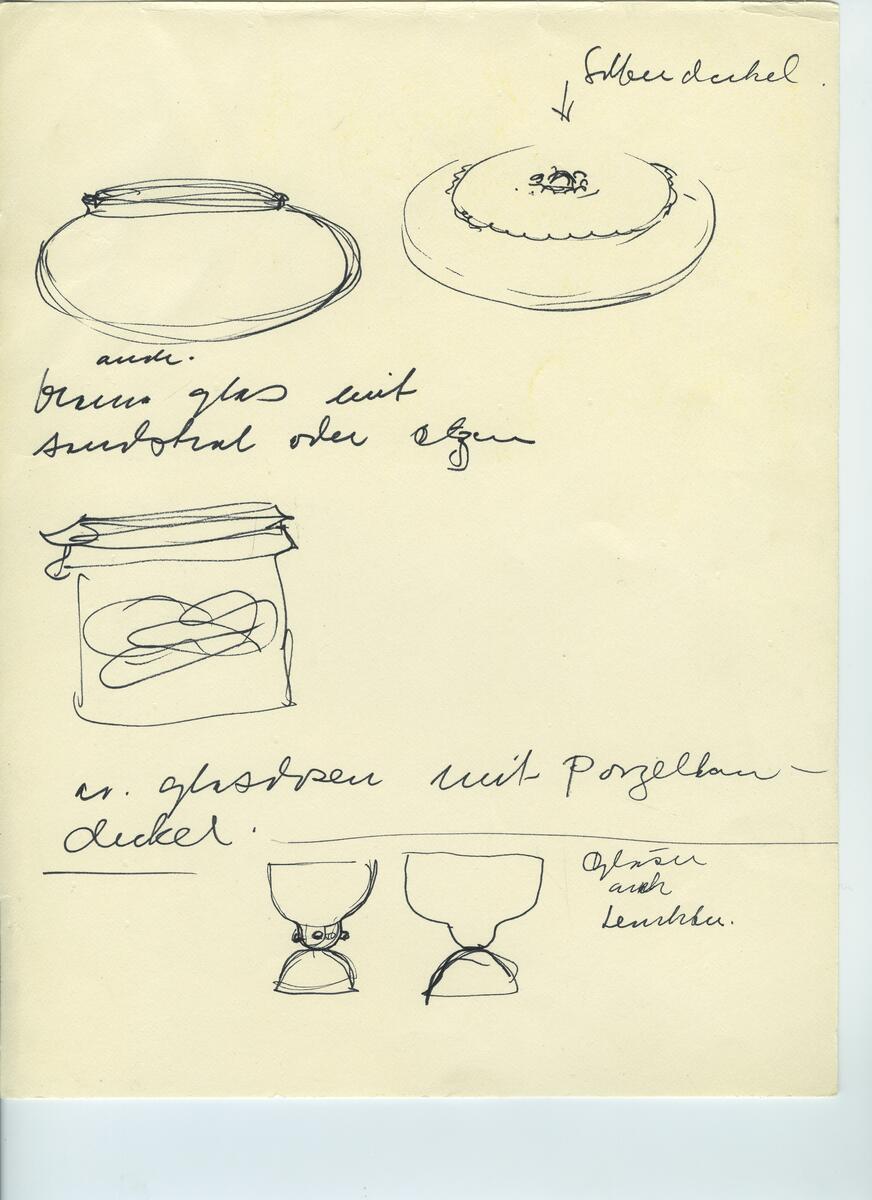 Silberdeckel.
auch.
braun glas mit
sandstral oder etzen
glasdosen mit Porzellan-
deckel.
Gläser
auch
Leuchter.